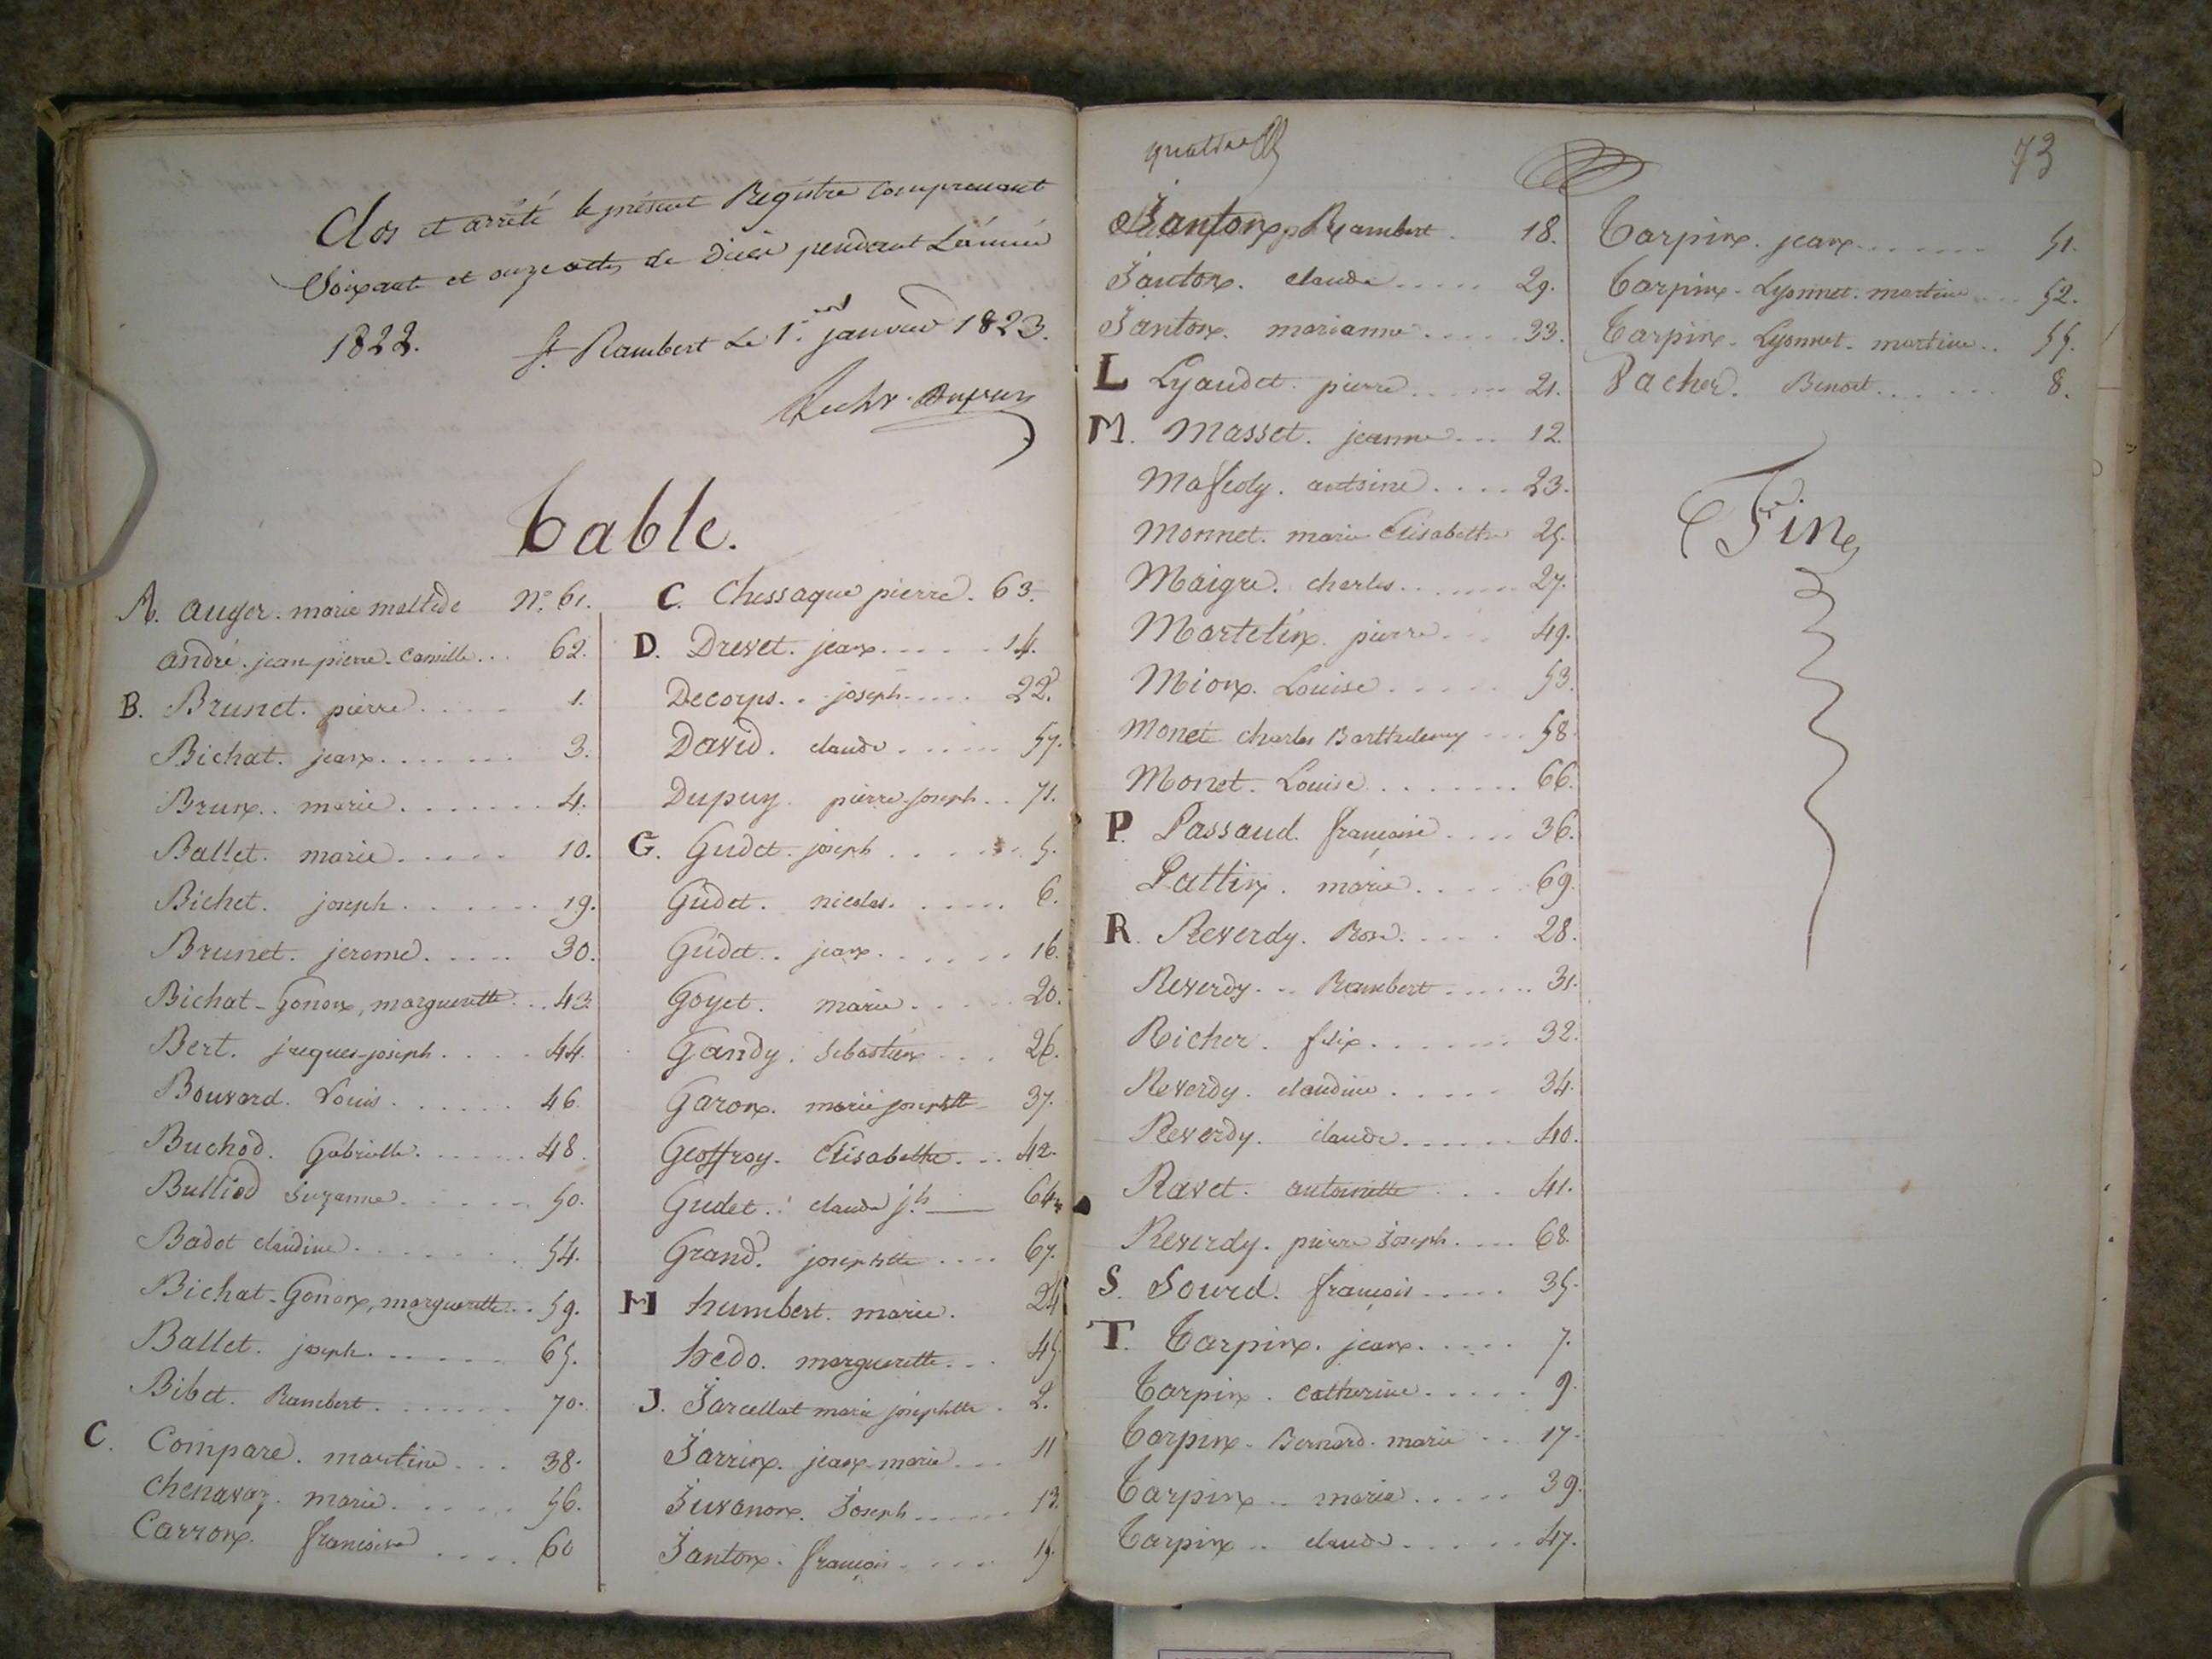 Clos et arrêté le présent Registre comprenant
Soixante et onze actes de Décès pendant L'année
1822. St. Rambert Le 1er janvier 1823.
Table.
A. auger. marie meltide N.° 61.
andré. jean pierre. Camille... 62.
B. Brunet. pierre.... 1.
Bichat. jean....... 3.
Brun.. marie....... 4.
Ballet. marie..... 10.
Bichet. joseph...... 19.
Brunet. jerome..... 30.
Bichat-Gonon, marguerette... 43.
Bert. jacques-joseph.... 44.
Bouvard. Louis...... 46.
Buchod. Gabrielle...... 48.
Bulliod Suzanne...... 50.
Badot claudine....... 54.
Bichat-Gonon, marguerette... 59.
Ballet. joseph...... 65.
Bibet. Rambert....... 70.
C. Compare. martine... 38.
Chenavaz. marie..... 56.
Carron. francoise.... 60
C. Chessaque pierre. 63.
D. Drevet. jean..... 14.
Decorps.. joseph.... 22.
David. claude...... 57.
Dupuy. pierre-joseph.. 71.
G. Gudet. joseph...... 5.
Gudet. nicolas...... 6.
Gudet.. jean...... 16.
Goyet. marie..... 20.
Gandy. Sebastien... 26.
Garon. marie josephtte 37.
Geoffroy. Elisabethe... 42.
Gudet. claude jh. 64.
Grand. josephtte.... 67.
H humbert. marie. 24
hedo. marguerette... 45
J. Jarcellat marie josephtte. 2.
Jarrin. jean-marie... 11
Juvanon. Joseph...... 13.
Janton. françois.... 15.
73
Janton Rambert. 18.
Janton. claude..... 29.
Janton. marianne..... 33.
L Lyaudet. pierre..... 21.
M. Masset. jeanne... 12.
antoine.... 23.
Monnet. marie Elisabethe 25.
Maigre. charles....... 27.
Martelin. pierre... 49.
Mion. Louise..... 53.
Monet charles Barthelemy... 58.
Monet. Louise........ 66.
P. Passaud. francoise.... 36.
Pattin. marie.... 69.
R. Reverdy. Rose..... 28.
Reverdy... Rambert..... 31.
Richer. felix....... 32.
Reverdy. claudine..... 34.
Reverdy. claude...... 40.
Ravet. antoinette... 41.
Reverdy. pierre Joseph.... 68.
S. Sourd. françois..... 35.
T. Tarpin. jean..... 7.
Tarpin. Catherine..... 9.
Tarpin. Bernard. marie.. 17.
Tarpin.. marie..... 39.
Tarpin.. claude...... 47.
Tarpin. jean....... 51.
Tarpin. Lyonnet. martine... 52.
Tarpin. Lyonnet. martine.. 55.
Vacher. Benoit...... 8.
Fin